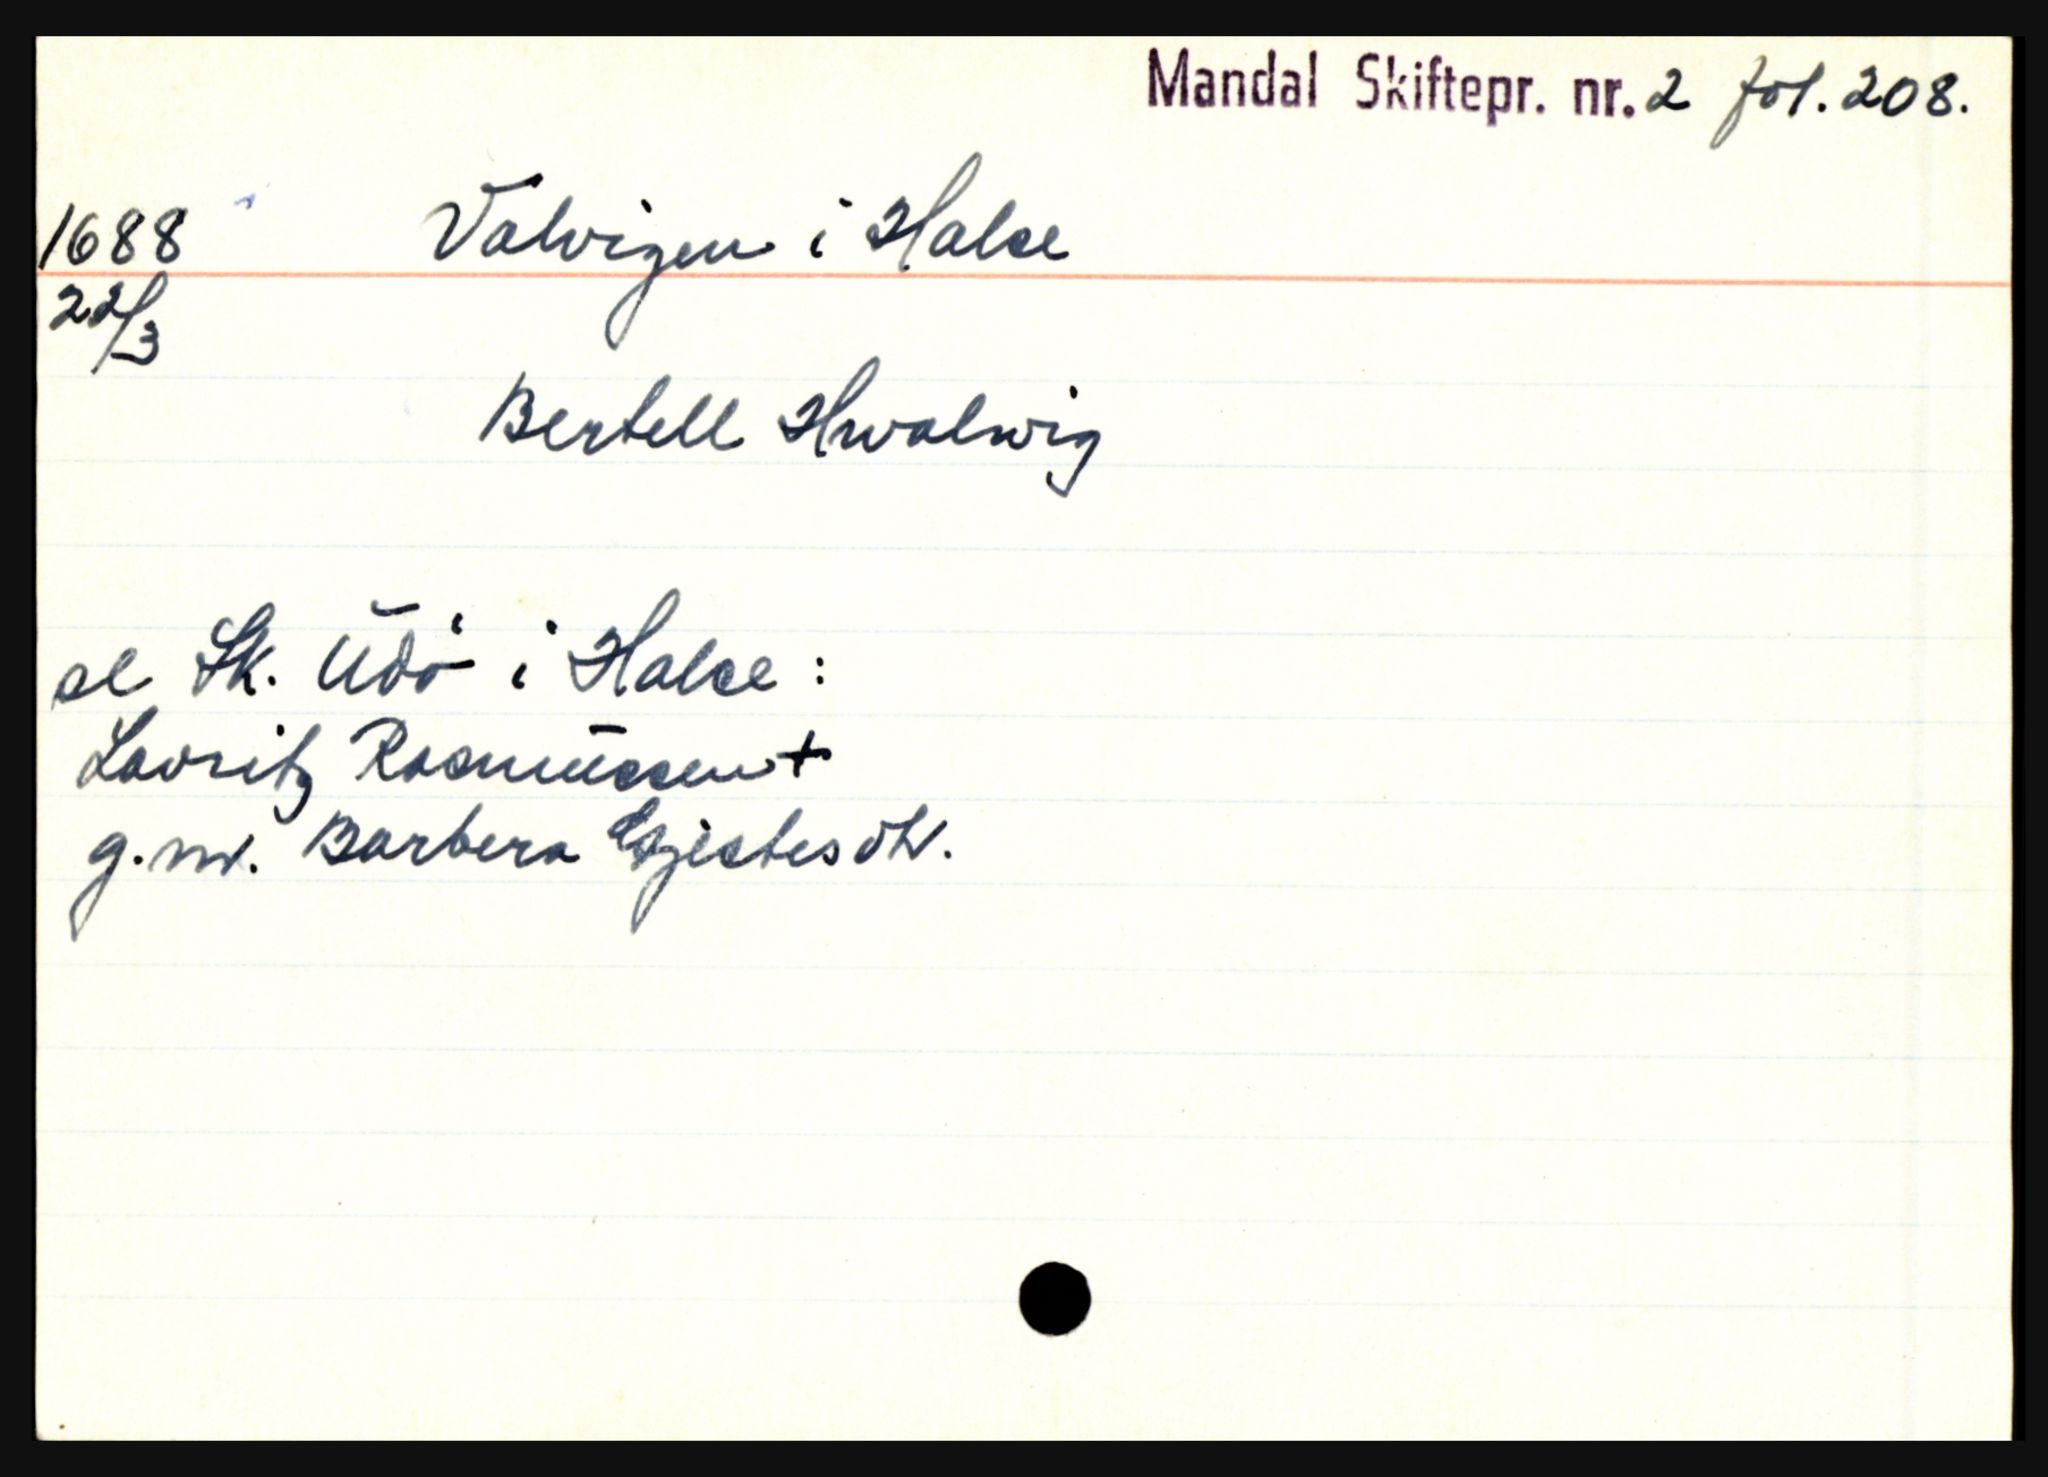 Mandal Skiftepr. nr. 2 fol. 208.
1688 Valvigen i Halse
22/3
Bertell Hvalwig
se Sk. Udö i Halse:
Lavritz Rasmussen +
g.m. Barbera Gjestesdtr.